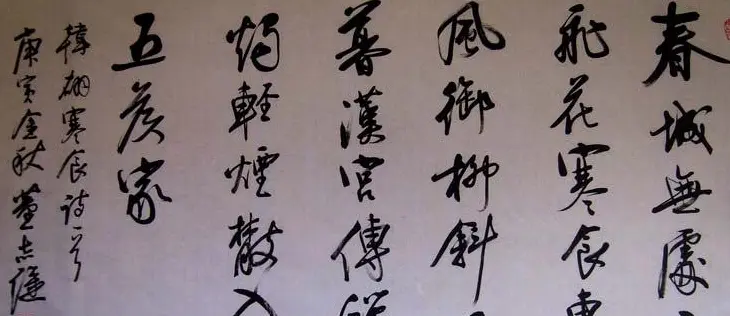 春城無處
飛花寒食東
風御柳斜
暮漢宮傳
燭輕煙散入
五侯家
韓翃寒食詩一首
庚寅金秋董志